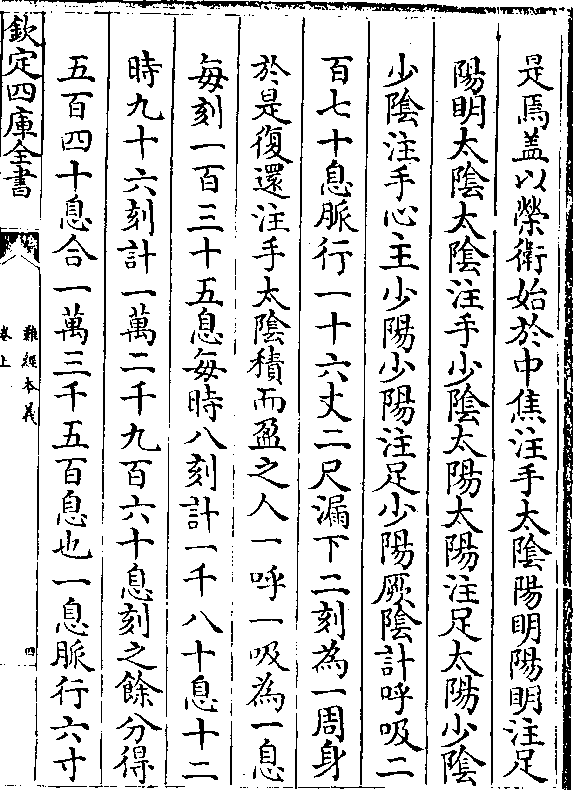 是焉蓋以榮衛始於中焦注手太陰陽明陽明注足
陽明太陰太陰注手少陰太陽太陽注足太陽少陰
少陰注手心主少陽少陽注足少陽厥陰計呼吸二
百七十息脈行一十六丈二尺漏下二刻為一周身
於是復還注手太陰積而盈之人一呼一吸為一息
每刻一百三十五息每時八刻計一千八十息十二
時九十六刻計一萬二千九百六十息刻之餘分得
五百四十息合一萬三千五百息也一息脈行六寸
欽定四庫全書
難經本義
卷上
四